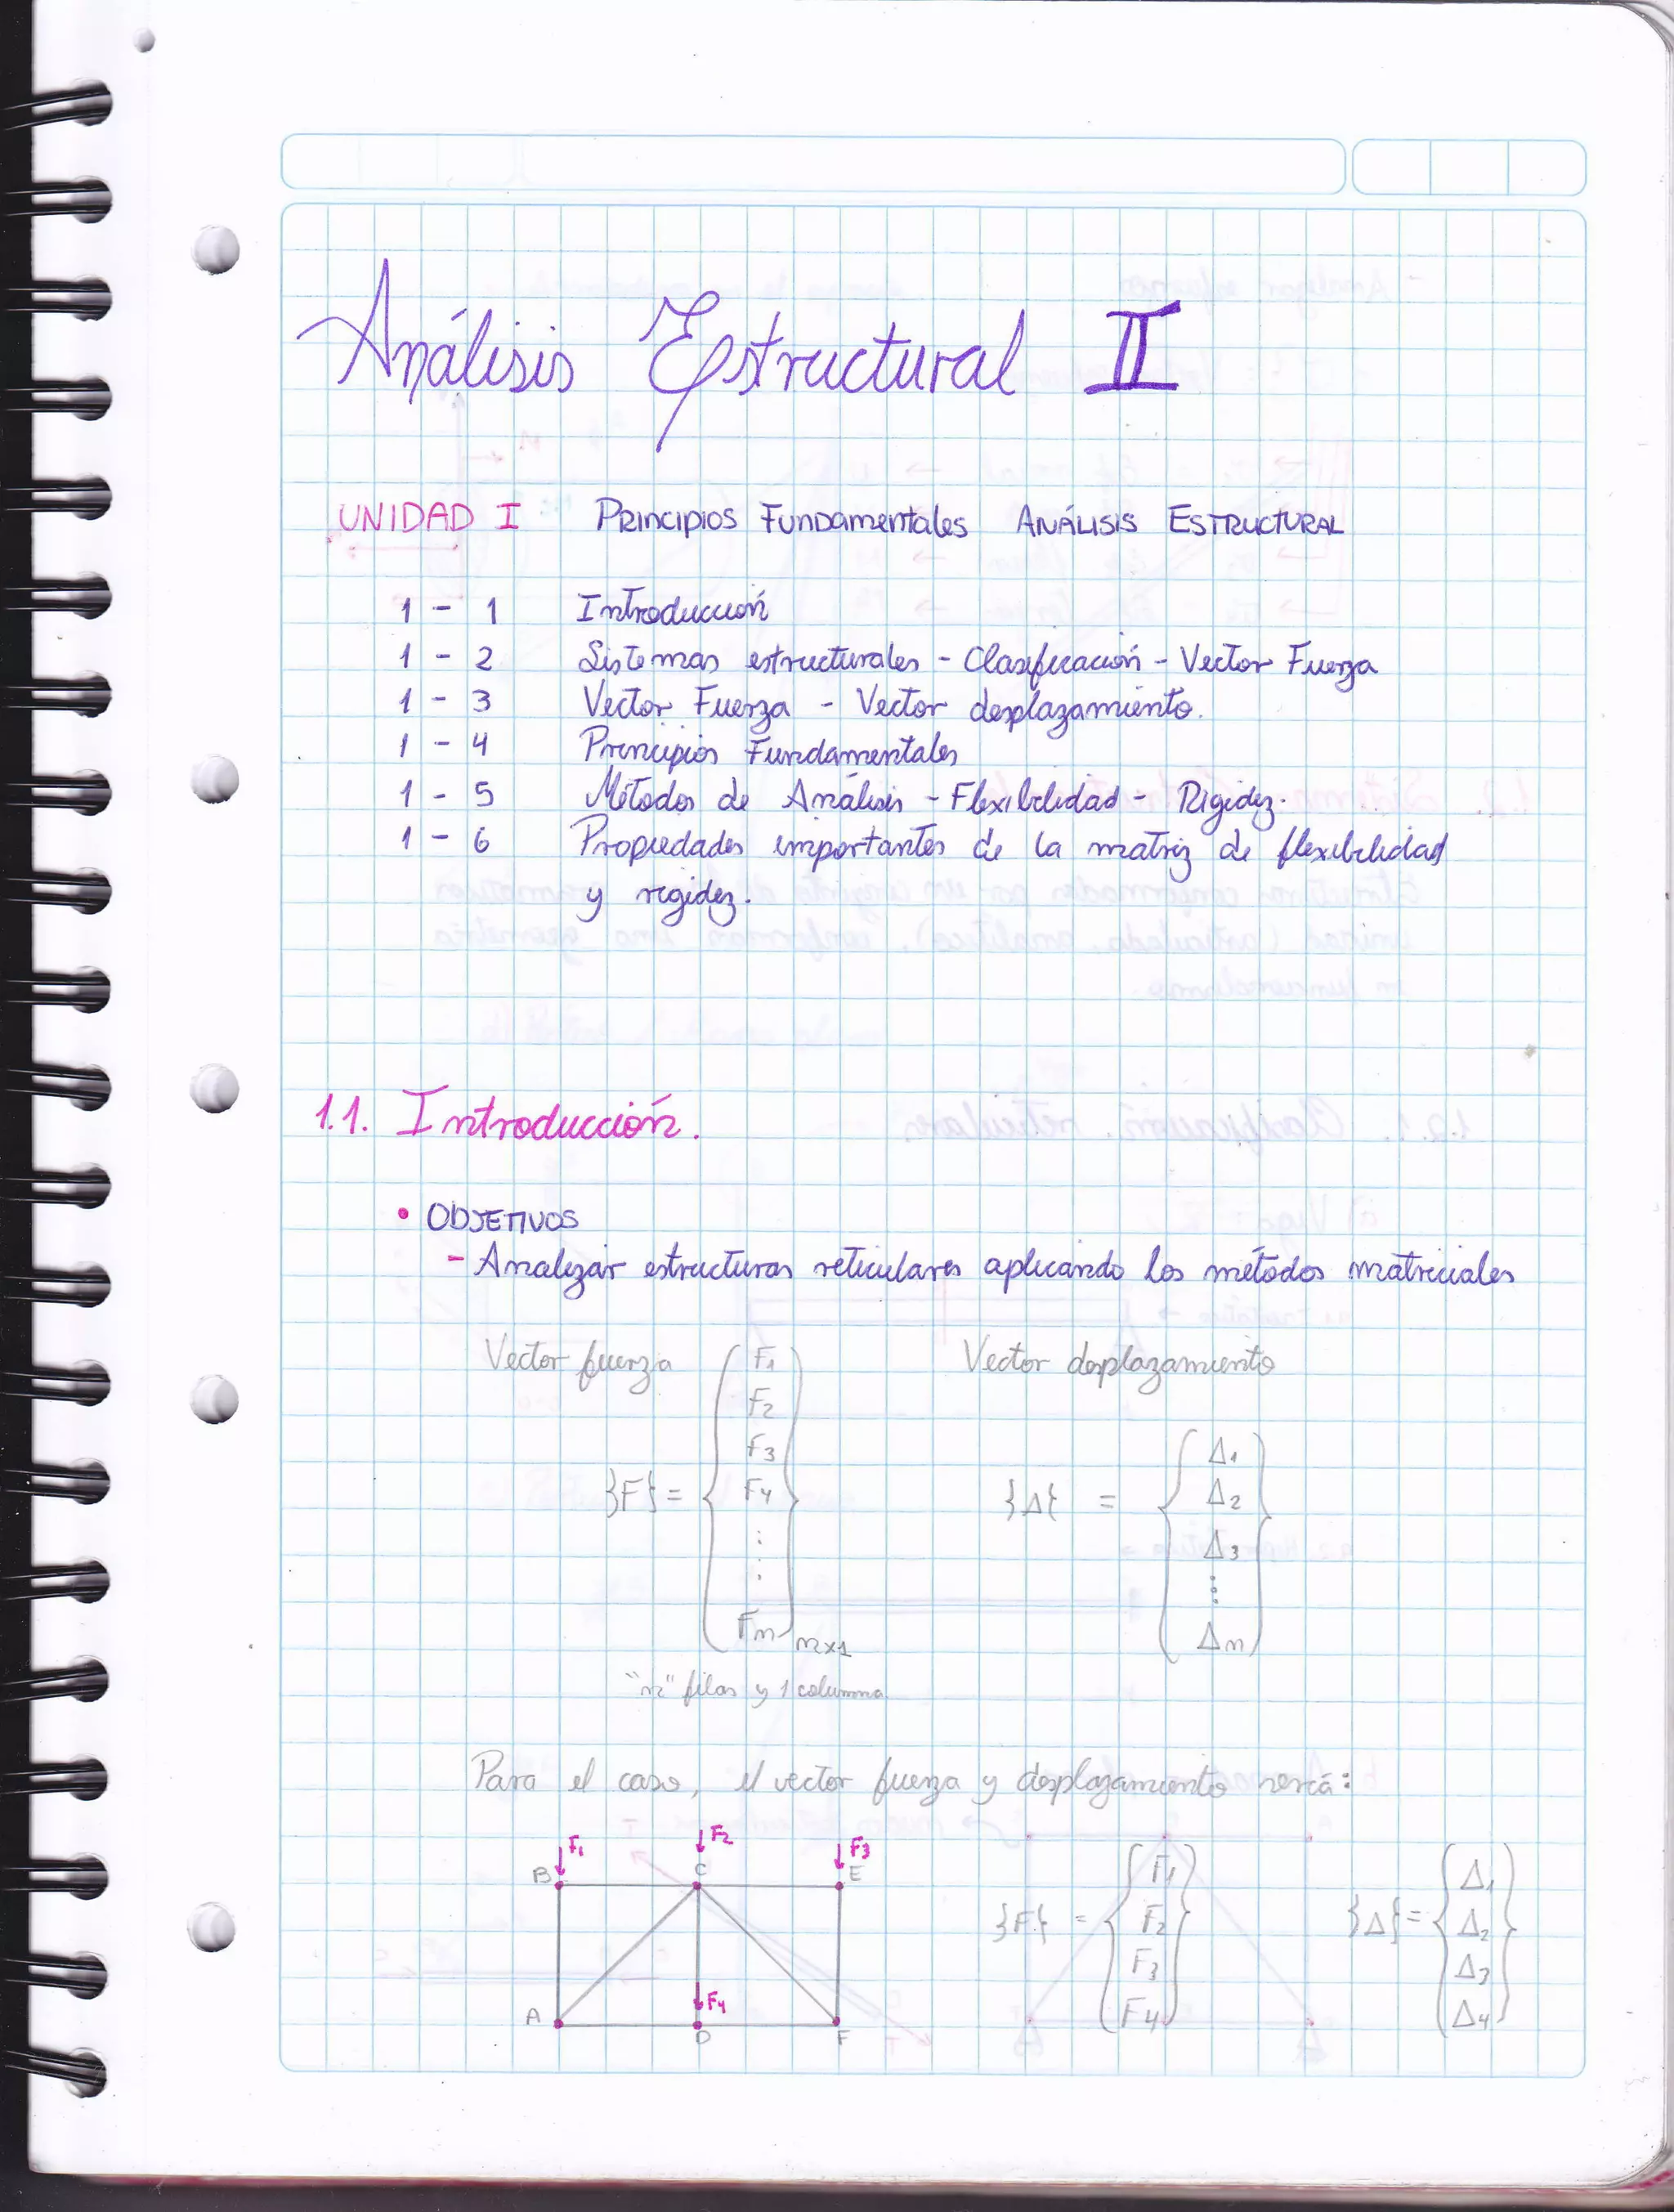 Análisis Estructural II
UNIDAD I Principios Fundamentales Análisis Estructural
1 - 1 Introducción
1 - 2 Sistemas estructurales - Clasificación - Vector Fuerza
1 - 3 Vector Fuerza - Vector desplazamiento.
1 - 4 Principios Fundamentales
1 - 5 Métodos de Análisis - Flexibilidad - Rigidez.
1 - 6 Propiedades importantes de la matriz de flexibilidad
y rigidez.
1.1. Introducción.
• OBJETIVOS
- Analizar estructuras reticulares aplicando los métodos matriciales
Vector fuerza
{F} =
F1
F2
F3
F4
⋮
Fn
nx1
"n" filas y 1 columna.
Vector desplazamiento
{Δ} =
Δ1
Δ2
Δ3
⋮
Δn
Para el caso, el vector fuerza y desplazamiento será:
F1 F2 F3
B C E
F4
A D F
{F} =
F1
F2
F3
F4
{Δ} =
Δ1
Δ2
Δ3
Δ4